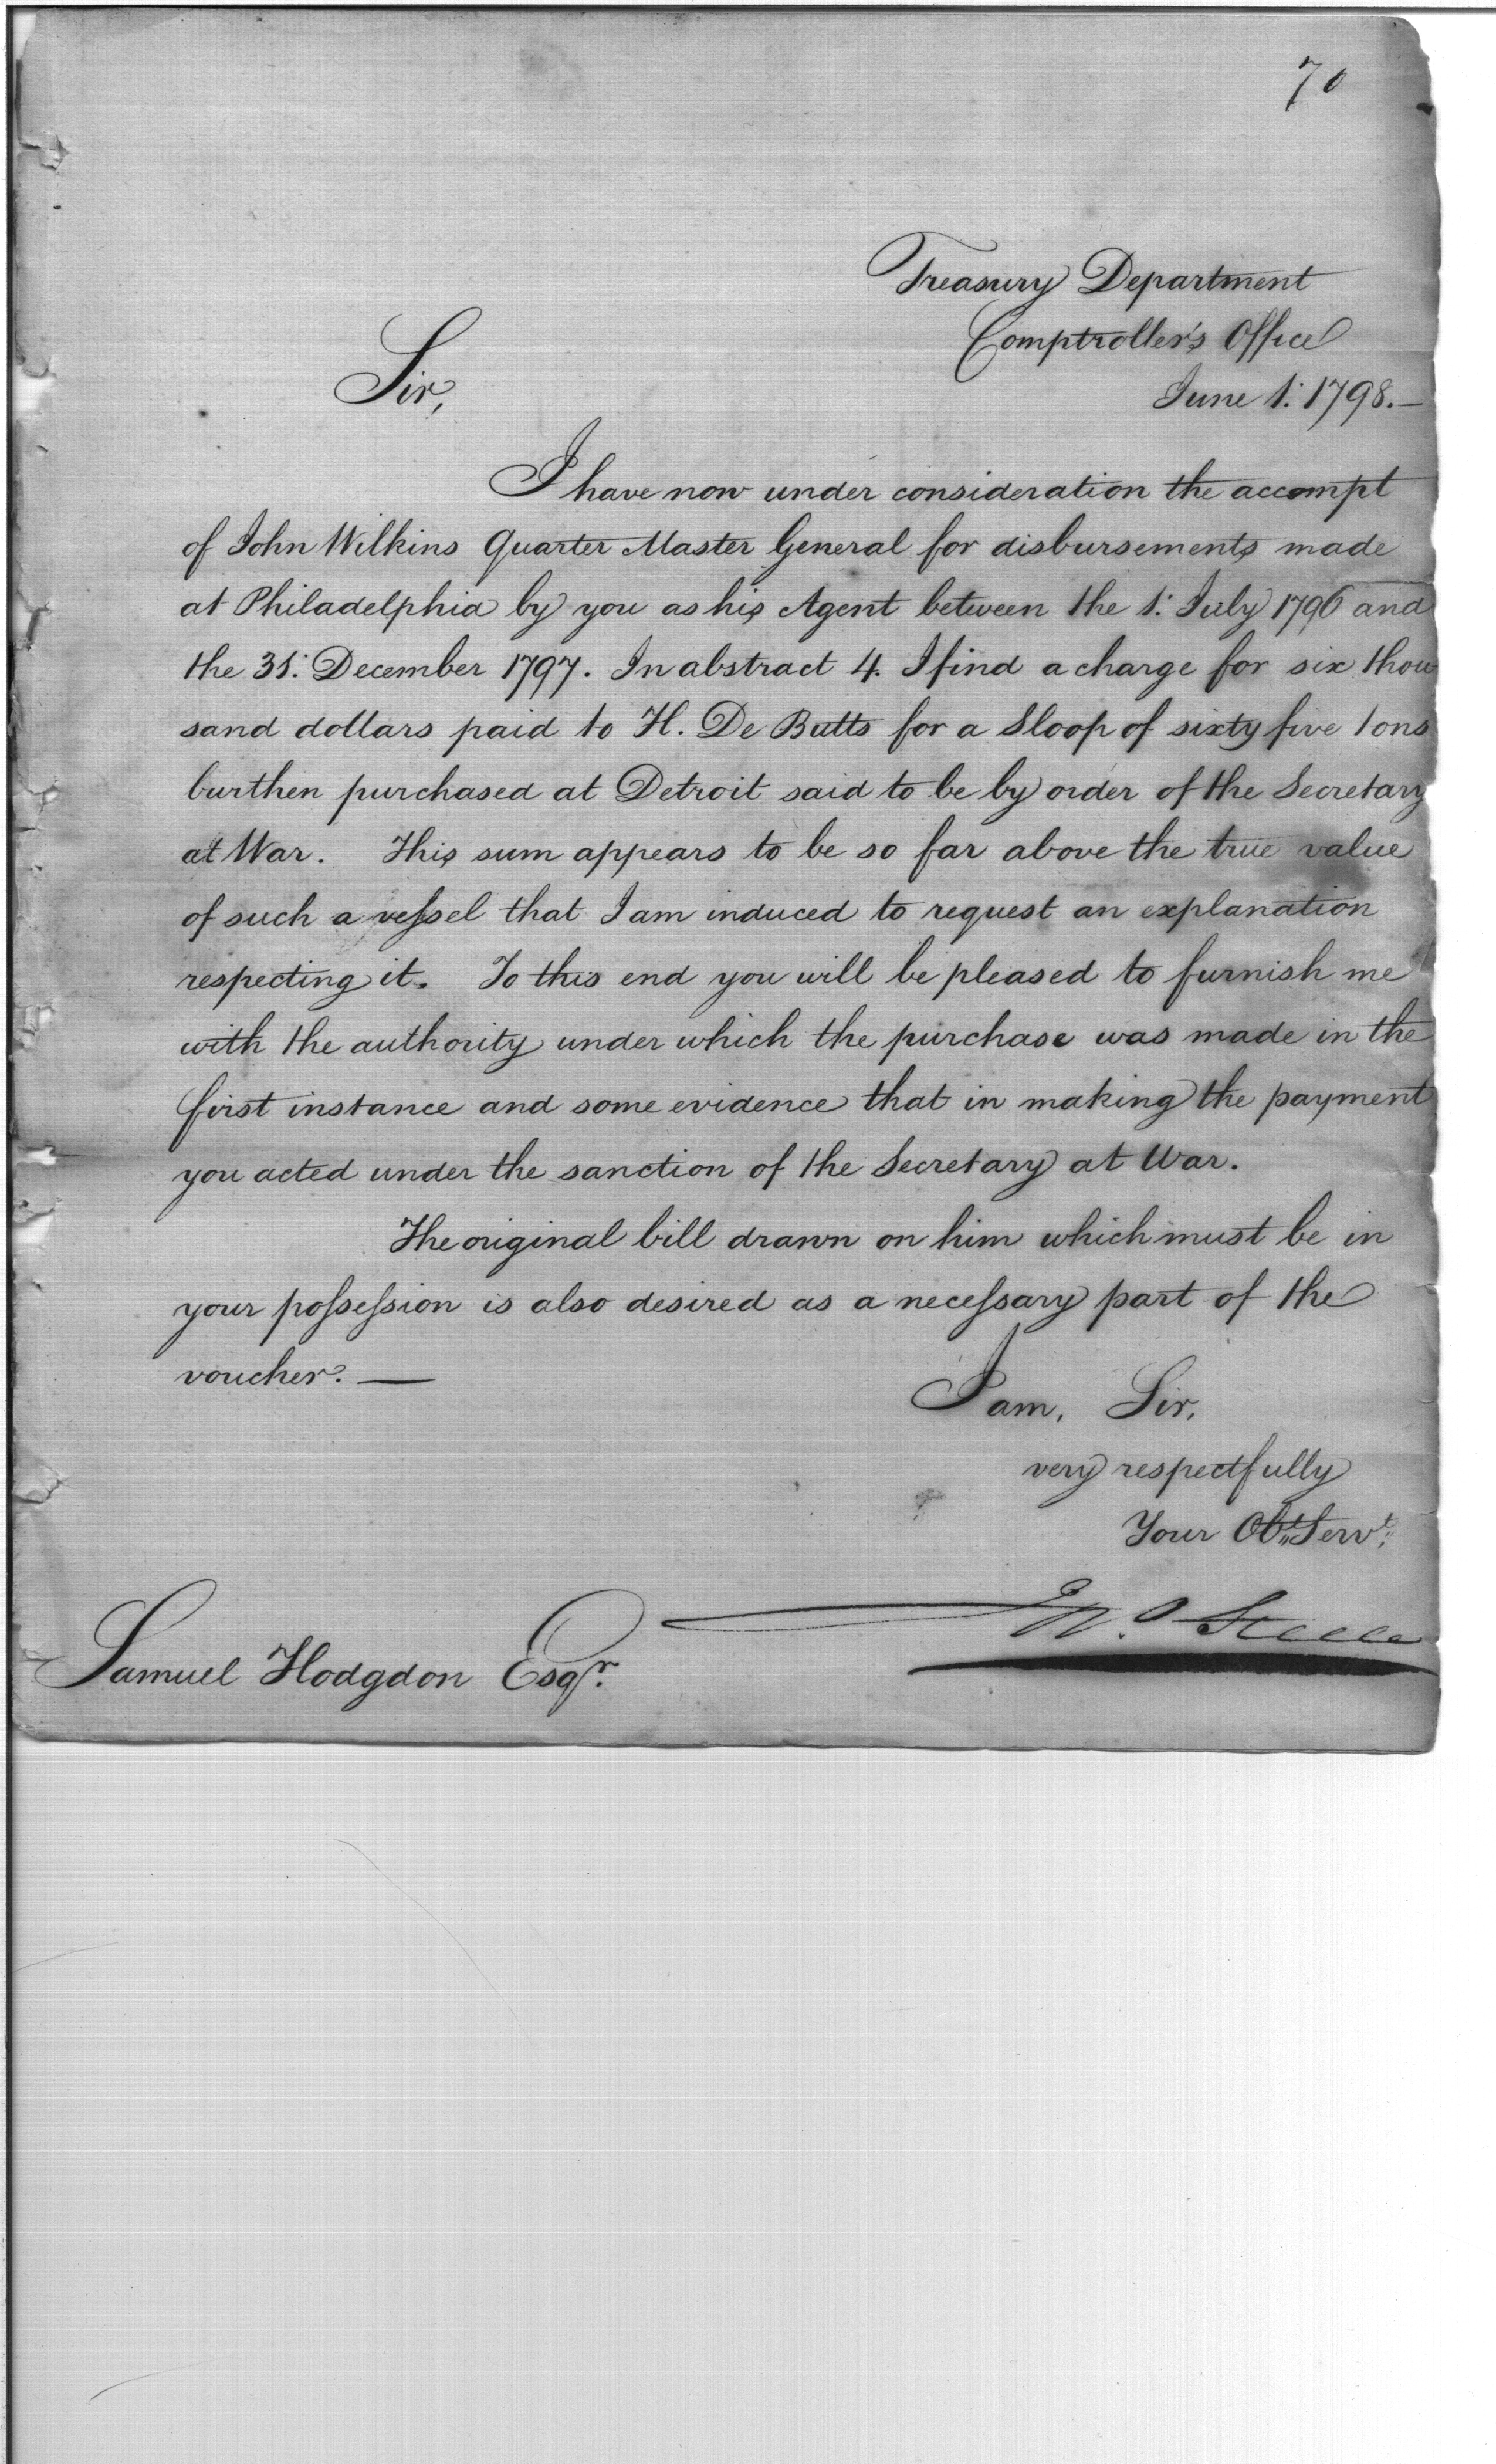 70
Treasury Department
Comptroller's Office
June 1: 1798.—
Sir,
I have now under consideration the accompt
of John Wilkins Quarter Master General for disbursements made
at Philadelphia by you as his Agent between the 1: July 1796 and
the 31: December 1797. In abstract 4. I find a charge for six thou
sand dollars paid to H. De Butts for a Sloop of sixty five tons
burthen purchased at Detroit said to be by order of the Secretary
at War. This sum appears to be so far above the true value
of such a veſsel that I am induced to request an explanation
respecting it. To this end you will be pleased to furnish me
with the authority under which the purchase was made in the
first instance and some evidence that in making the payment
you acted under the sanction of the Secretary at War.
The original bill drawn on him which must be in
your poſseſsion is also desired as a neceſsary part of the
voucher. —
I am, Sir,
very respectfully
Your Obt Servt
Jno Steele
Samuel Hodgdon Esqr.